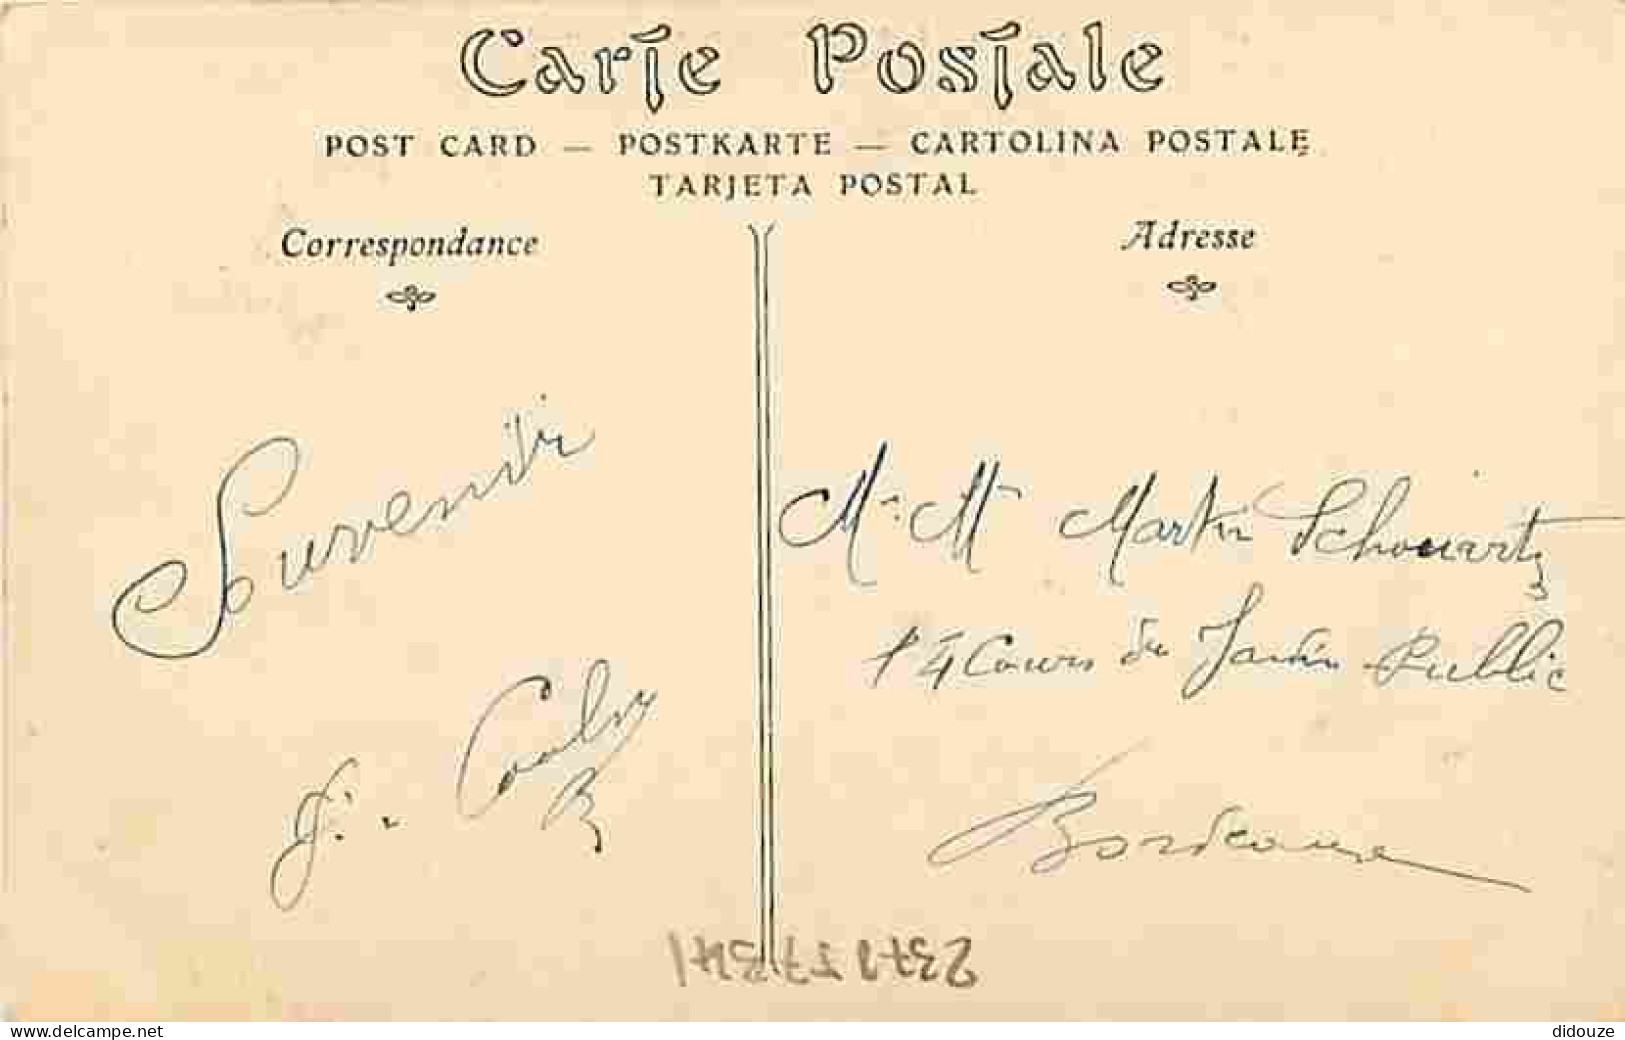 Carte Postale
POST CARD — POSTKARTE — CARTOLINA POSTALE
TARJETA POSTAL
Correspondance
Adresse
Souvenir
Mr. Mme Martin Schwartz
14 Cours du Jardin Public
Bordeaux
J.
www.delcampe.net
didouze